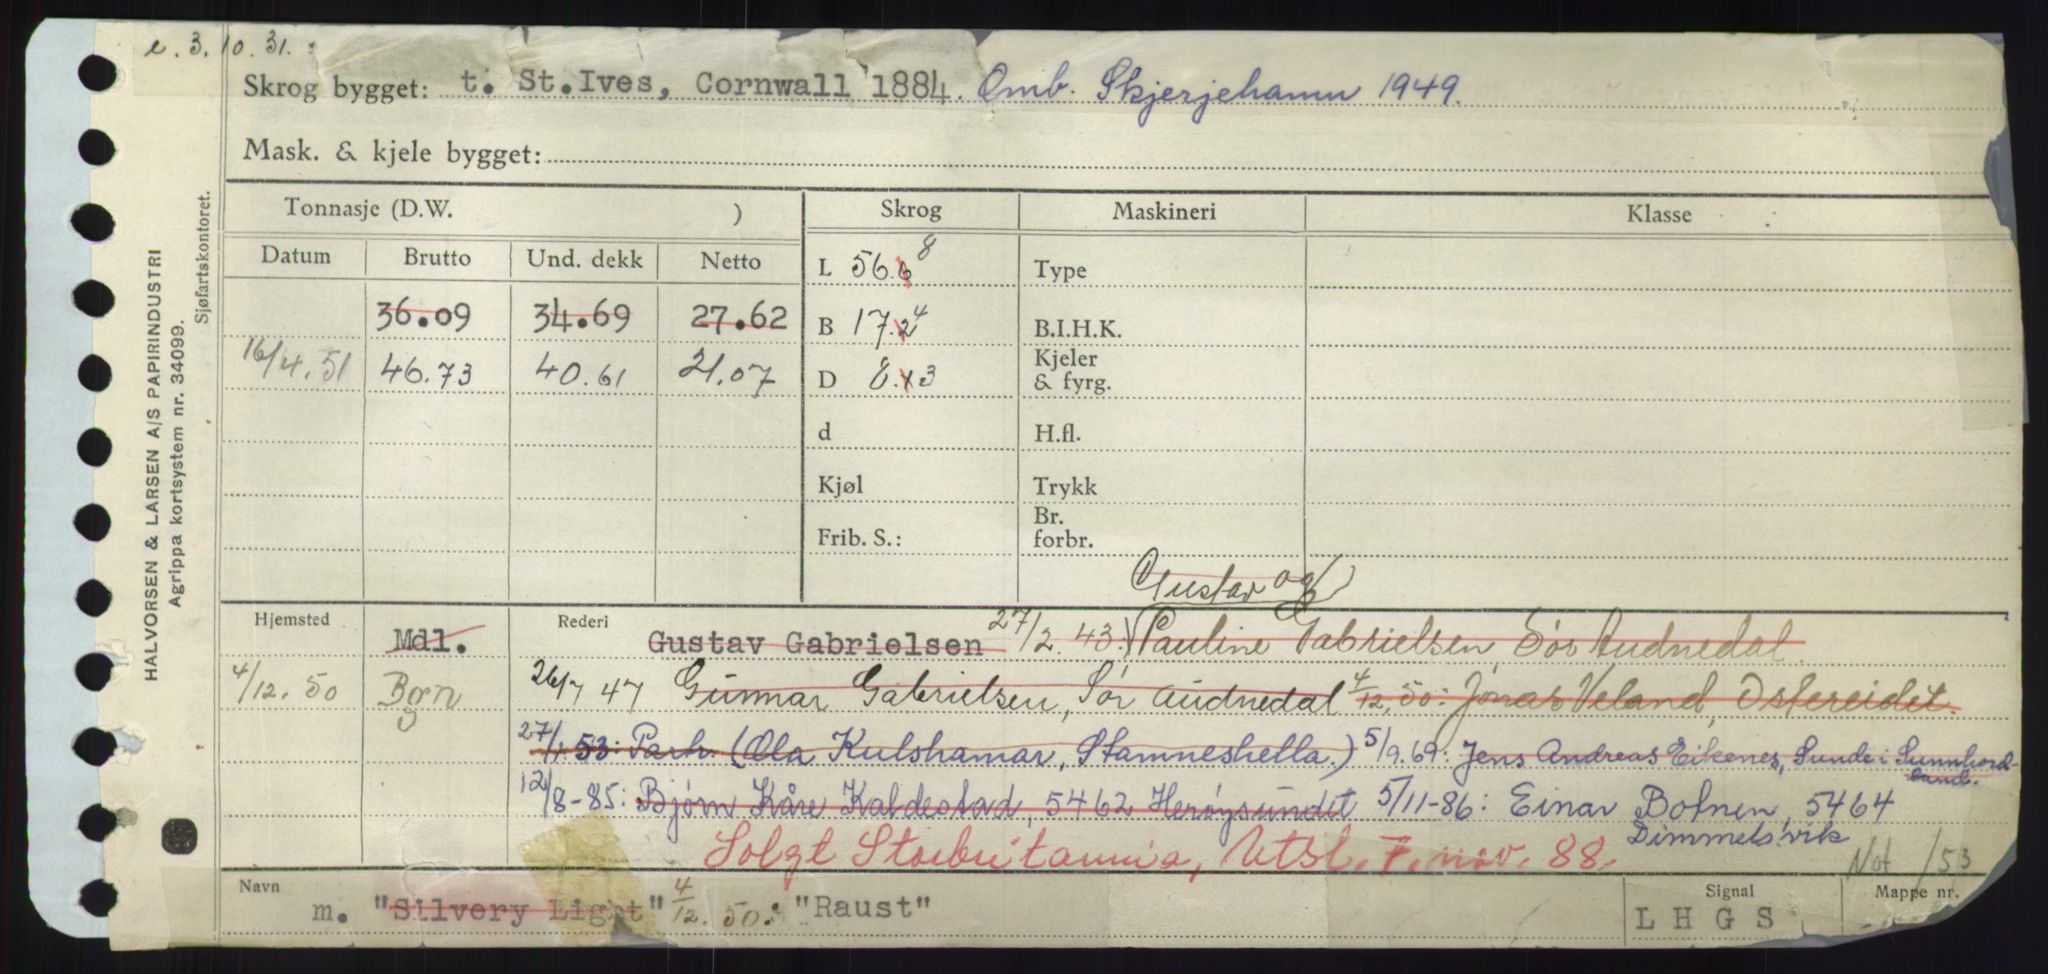 e. 3.10.31.
Skrog bygget: t. St.Ives, Cornwall 1884. Omb. Skjerjehamn 1949.
Mask. & kjele bygget:
HALVORSEN & LARSEN A/S PAPIRINDUSTRI
Agrippa kortsystem nr. 34099.
Sjøfartskontoret.
Tonnasje (D.W. ) Skrog Maskineri Klasse
Datum Brutto Und. dekk Netto
L 56.6 8 Type
36.09 34.69 27.62 B 17.2 4 B.I.H.K.
16/4.51 46.73 40.61 21.07 D 8. 3 Kjeler & fyrg.
d H.fl.
Kjøl Trykk
Frib. S.: Br. forbr.
Gustav og
Hjemsted Mdl. Rederi Gustav Gabrielsen 27/2.43: Pauline Gabrielsen Sør Audnedal.
4/12.50 Bgn 26/7 47 Gunnar Gabrielsen, Sør Audnedal 4/12.50: Jonas Veland, Ostereidet.
27/1.53: Partr. (Ola Kulshamar, Stamneshella.) 5/9.69: Jens Andreas Eikenes, Sunde i Sunnhordland.
12/8-85: Bjørn Kåre Kaldestad, 5462 Herøysundet 5/11-86: Einar Bofnen, 5464
Dimmelsvik
Solgt Storbritannia, Utsl. 7. nov. 88.
Not /53
Navn m. "Silvery Light" 4/12.50: "Raust" Signal LHGS Mappe nr.